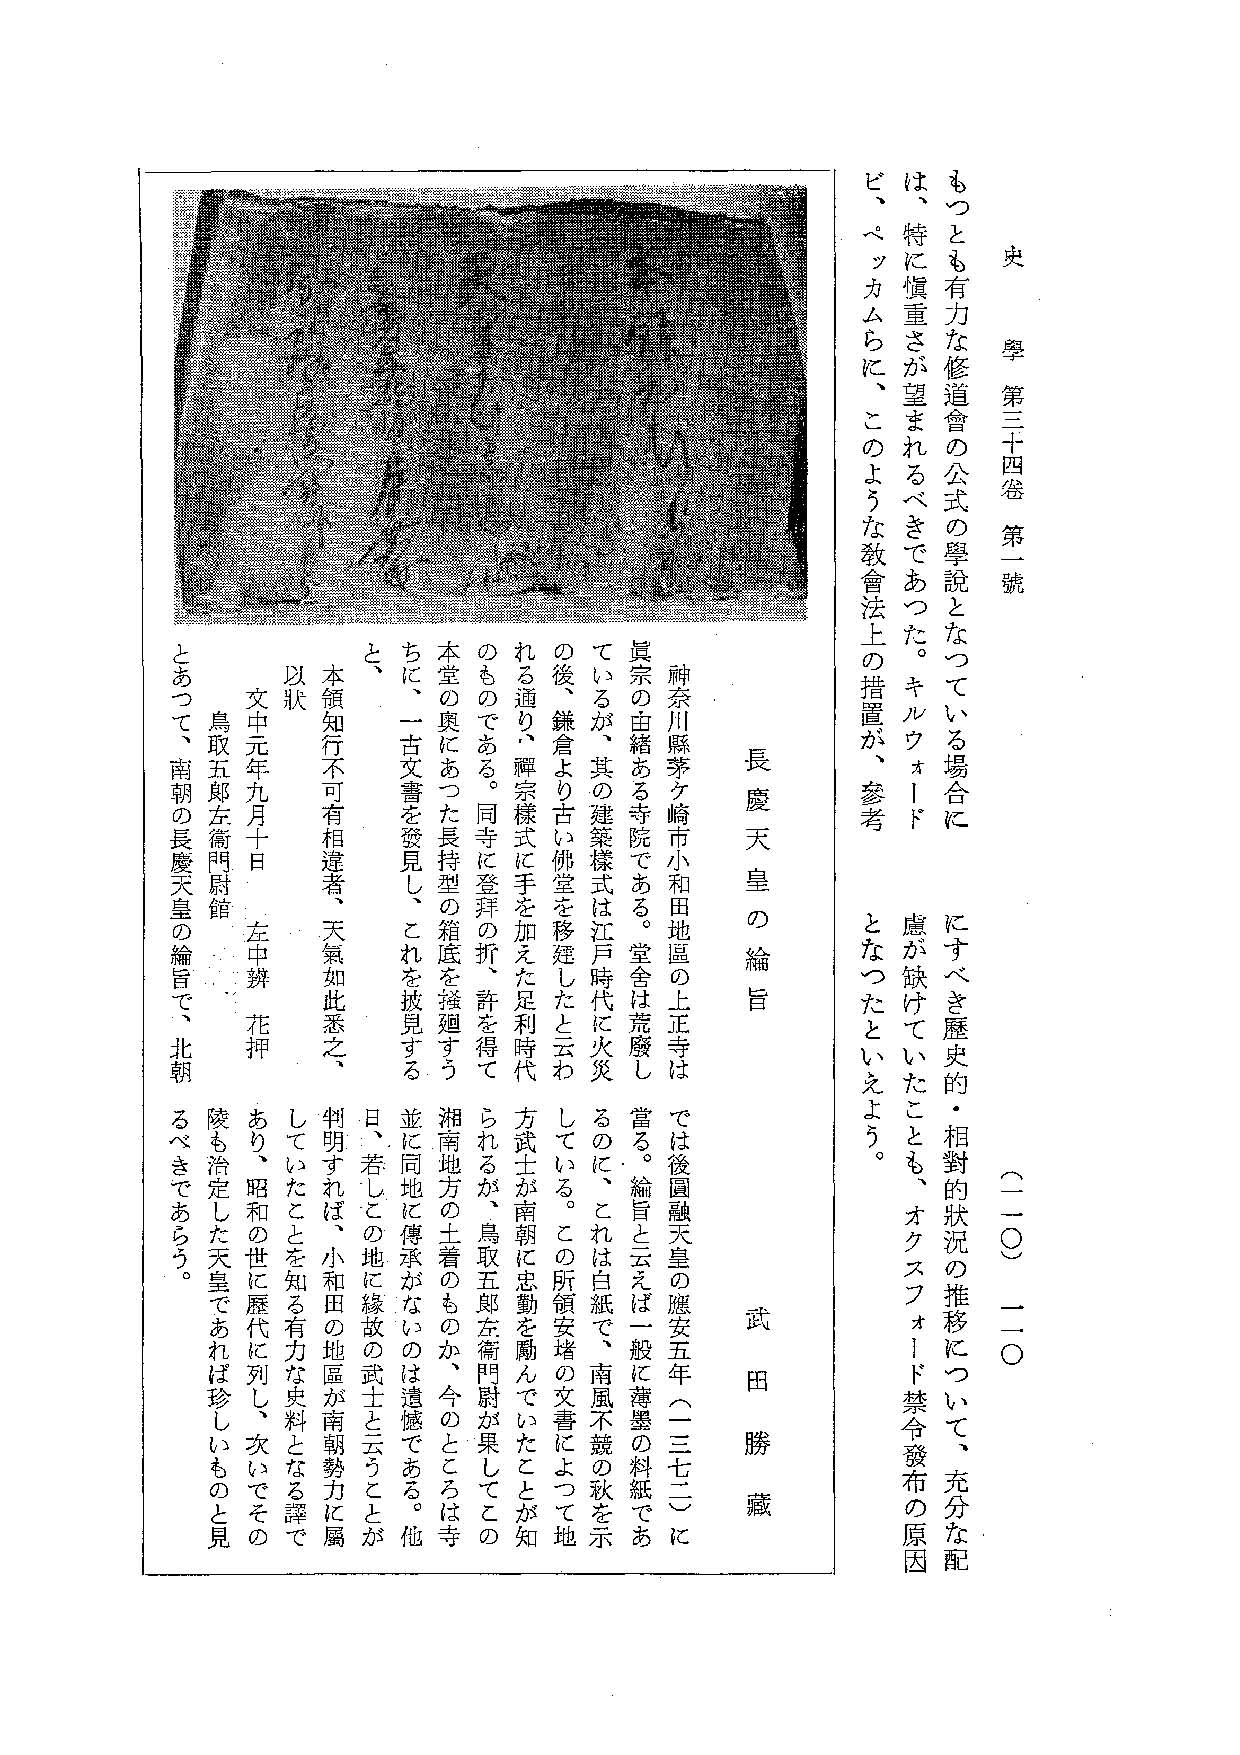 史學 第三十四卷 第一號
(一一〇) 一一〇
もつとも有力な修道會の公式の學說となつている場合に
は、特に愼重さが望まれるべきであつた。キルウォード
ビ、ペッカムらに、このような敎會法上の措置が、參考
にすべき歷史的・相對的狀況の推移について、充分な配
慮が缺けていたことも、オクスフォード禁令發布の原因
となつたといえよう。
長慶天皇の綸旨
武田勝藏
神奈川縣茅ケ崎市小和田地區の上正寺は
眞宗の由緒ある寺院である。堂舍は荒廢し
ているが、其の建築樣式は江戶時代に火災
の後、鎌倉より古い佛堂を移建したと云わ
れる通り、禪宗樣式に手を加えた足利時代
のものである。同寺に登拜の折、許を得て
本堂の奧にあつた長持型の箱底を掻廻すう
ちに、一古文書を發見し、これを披見する
と、
本領知行不可有相違者、天氣如此悉之、
以狀
文中元年九月十日 左中辨 花押
鳥取五郞左衞門尉館
とあつて、南朝の長慶天皇の綸旨で、北朝
では後圓融天皇の應安五年(一三七二)に
當る。綸旨と云えば一般に薄墨の料紙であ
るのに、これは白紙で、南風不競の秋を示
している。この所領安堵の文書によつて地
方武士が南朝に忠勤を勵んでいたことが知
られるが、鳥取五郞左衞門尉が果してこの
湘南地方の土着のものか、今のところは寺
並に同地に傳承がないのは遺憾である。他
日、若しこの地に緣故の武士と云うことが
判明すれば、小和田の地區が南朝勢力に屬
していたことを知る有力な史料となる譯で
あり、昭和の世に歷代に列し、次いでその
陵も治定した天皇であれば珍しいものと見
るべきであらう。